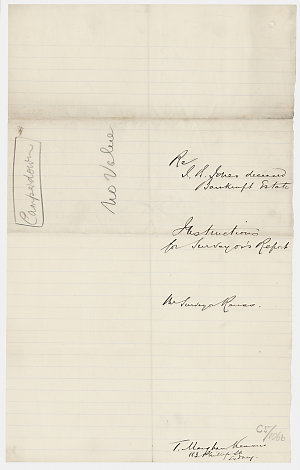 Camperdown
No Value
Re
Jones deceased
Bankrupt Estate
Instructions
for Surveyors Report
Mr Surveyor
T. Maughan
Phillip St
Sydney